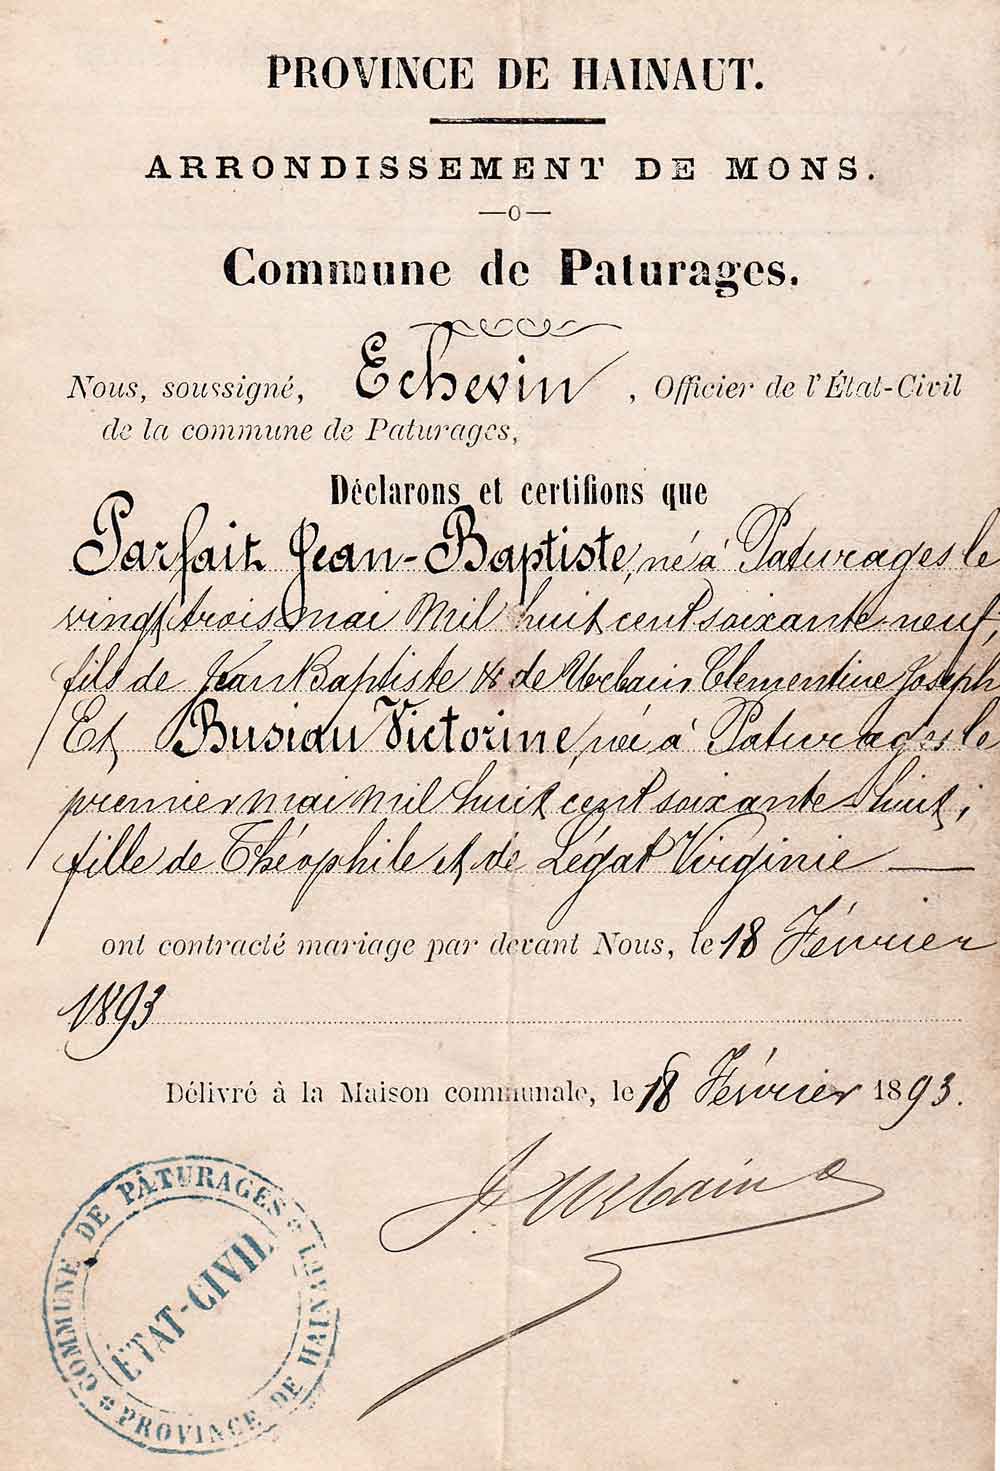 PROVINCE DE HAINAUT.
ARRONDISSEMENT DE MONS.
—o—
Commune de Paturages.
Nous, soussigné, Echevin, Officier de l'État-Civil
de la commune de Paturages,
Déclarons et certifions que
Parfait Jean-Baptiste, né à Paturages le
vingt trois mai mil huit cent soixante neuf,
fils de Jean Baptiste & de Urbain Clementine Joseph
Et Busiau Victorine, née à Paturages le
premier mai mil huit cent soixante-huit,
fille de Théophile et de Légat Virginie —
ont contracté mariage par devant Nous, le 18 Février
1893
Délivré à la Maison communale, le 18 Février 1893.
J Urbain
COMMUNE DE PÂTURAGES
ÉTAT-CIVIL
PROVINCE DE HAINAUT